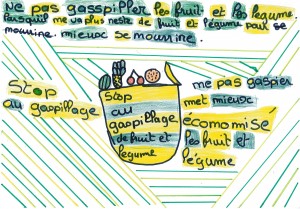 Ne pas gasspiller les fruit et les legume
Parsquil me va plus neste de fruit et légume pour se
mourrire. mieux se mourrire.
Stop
au gaspillage
Stop
au
gaspillage
de fruit et
legume
me pas gaspier
met mieux
économisé
les fruit et
légume